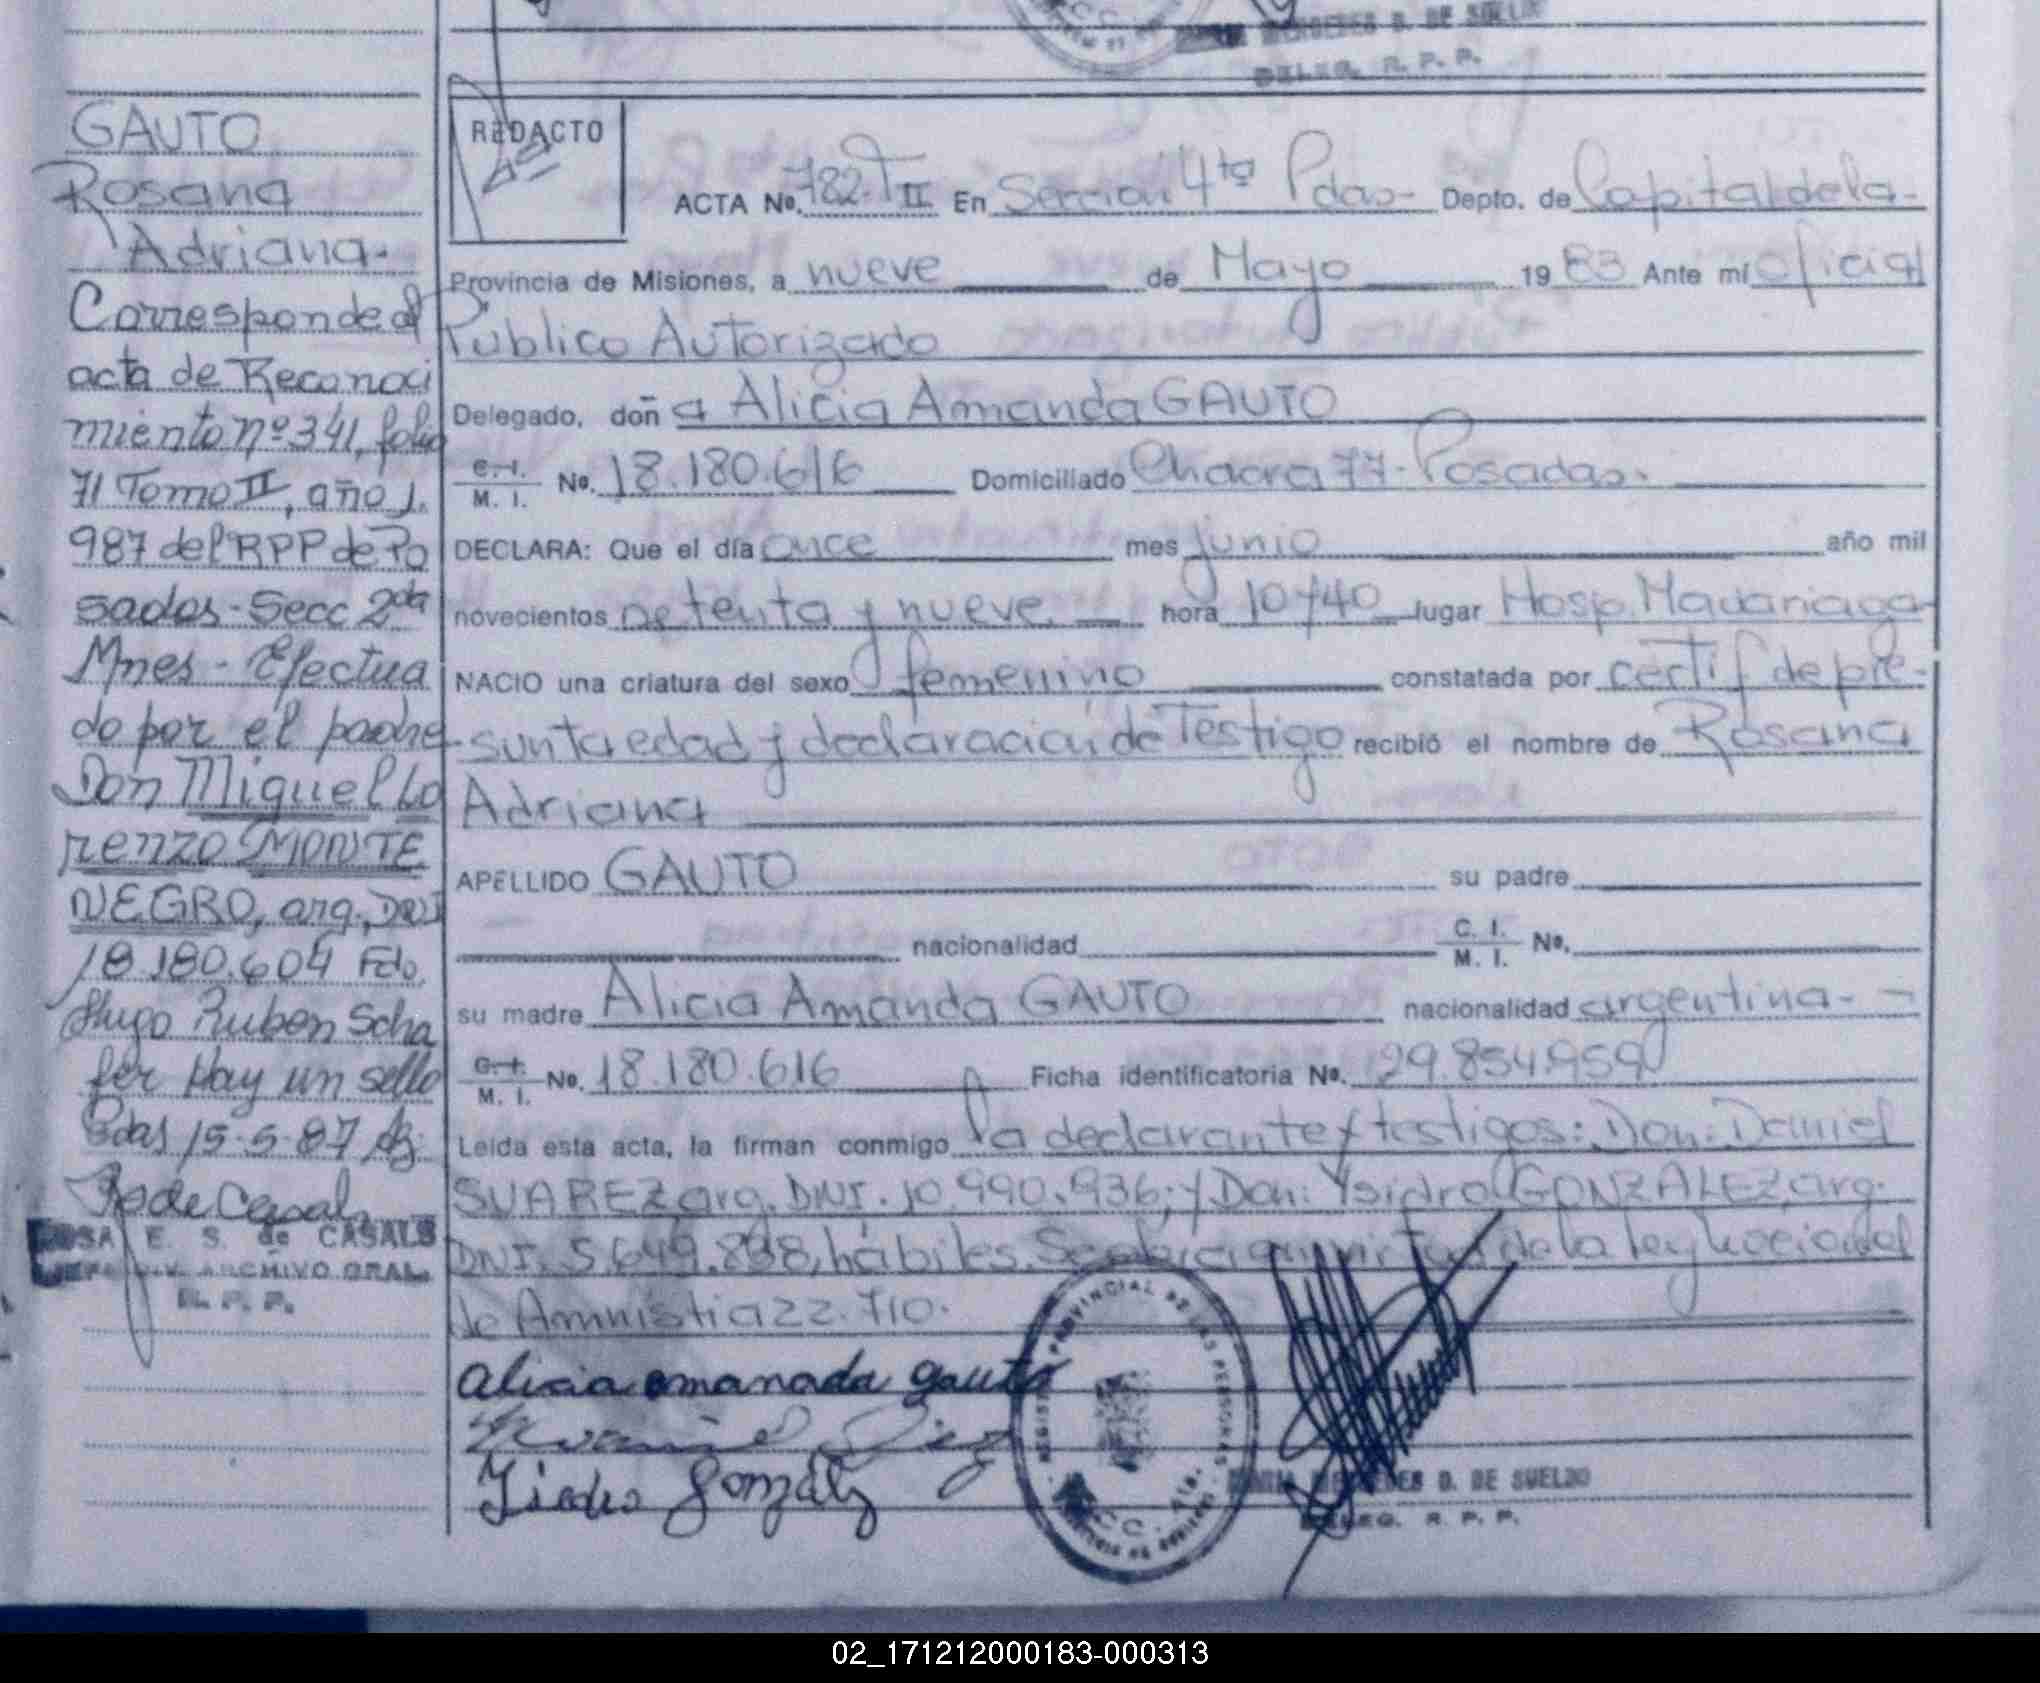 DELEG. R. P. P.
GAUTO
Rosana
Adriana.
Corresponde al
acta de Reconoci
miento nº 341, folio
71 Tomo II, año 1.
987 del RPP de Po
sadas - Secc 2da
Mnes - Efectua
do por el padre
Don Miguel Lo
renzo MONTE
NEGRO, arg., DNI
18.180.604 Fdo.
Hugo Ruben Scha
fer Hay un sello
Pdas 15-5-87
E. S. de CASALS
ARCHIVO GRAL.
R. P. P.
REDACTO
ACTA No. 782 T II En Seccion 4ta Pdas- Depto. de Capital de la-
Provincia de Misiones, a nueve de Mayo 1983 Ante mi Oficial
Publico Autorizado
Delegado, doña Alicia Amanda GAUTO
C. I.
M. I. No. 18.180.616 Domiciliado Chacra 77- Posadas.
DECLARA: Que el día once mes junio año mil
novecientos setenta y nueve. hora 10y40 lugar Hosp. Madariaga
NACIO una criatura del sexo femenino constatada por certif de pre-
sunta edad y declaración de Testigo recibió el nombre de Rosana
Adriana
APELLIDO GAUTO su padre
nacionalidad C. I.
M. I. No.
su madre Alicia Amanda GAUTO nacionalidad argentina.-
C. I.
M. I. No. 18.180.616 Ficha identificatoria No. 29.854.959
Leída esta acta, la firman conmigo la declarante y testigos: Don: Daniel
SUAREZ arg. DNI. 10.990.936; y Don: Ysidro GONZALEZ, arg.
DNI. 5.649.838, hábiles. virtud de la ley Nacional
de Amnistia 22.710.
alicia amanada gauto
DE SUELDO
DELEG. R. P. P.
02_171212000183-000313